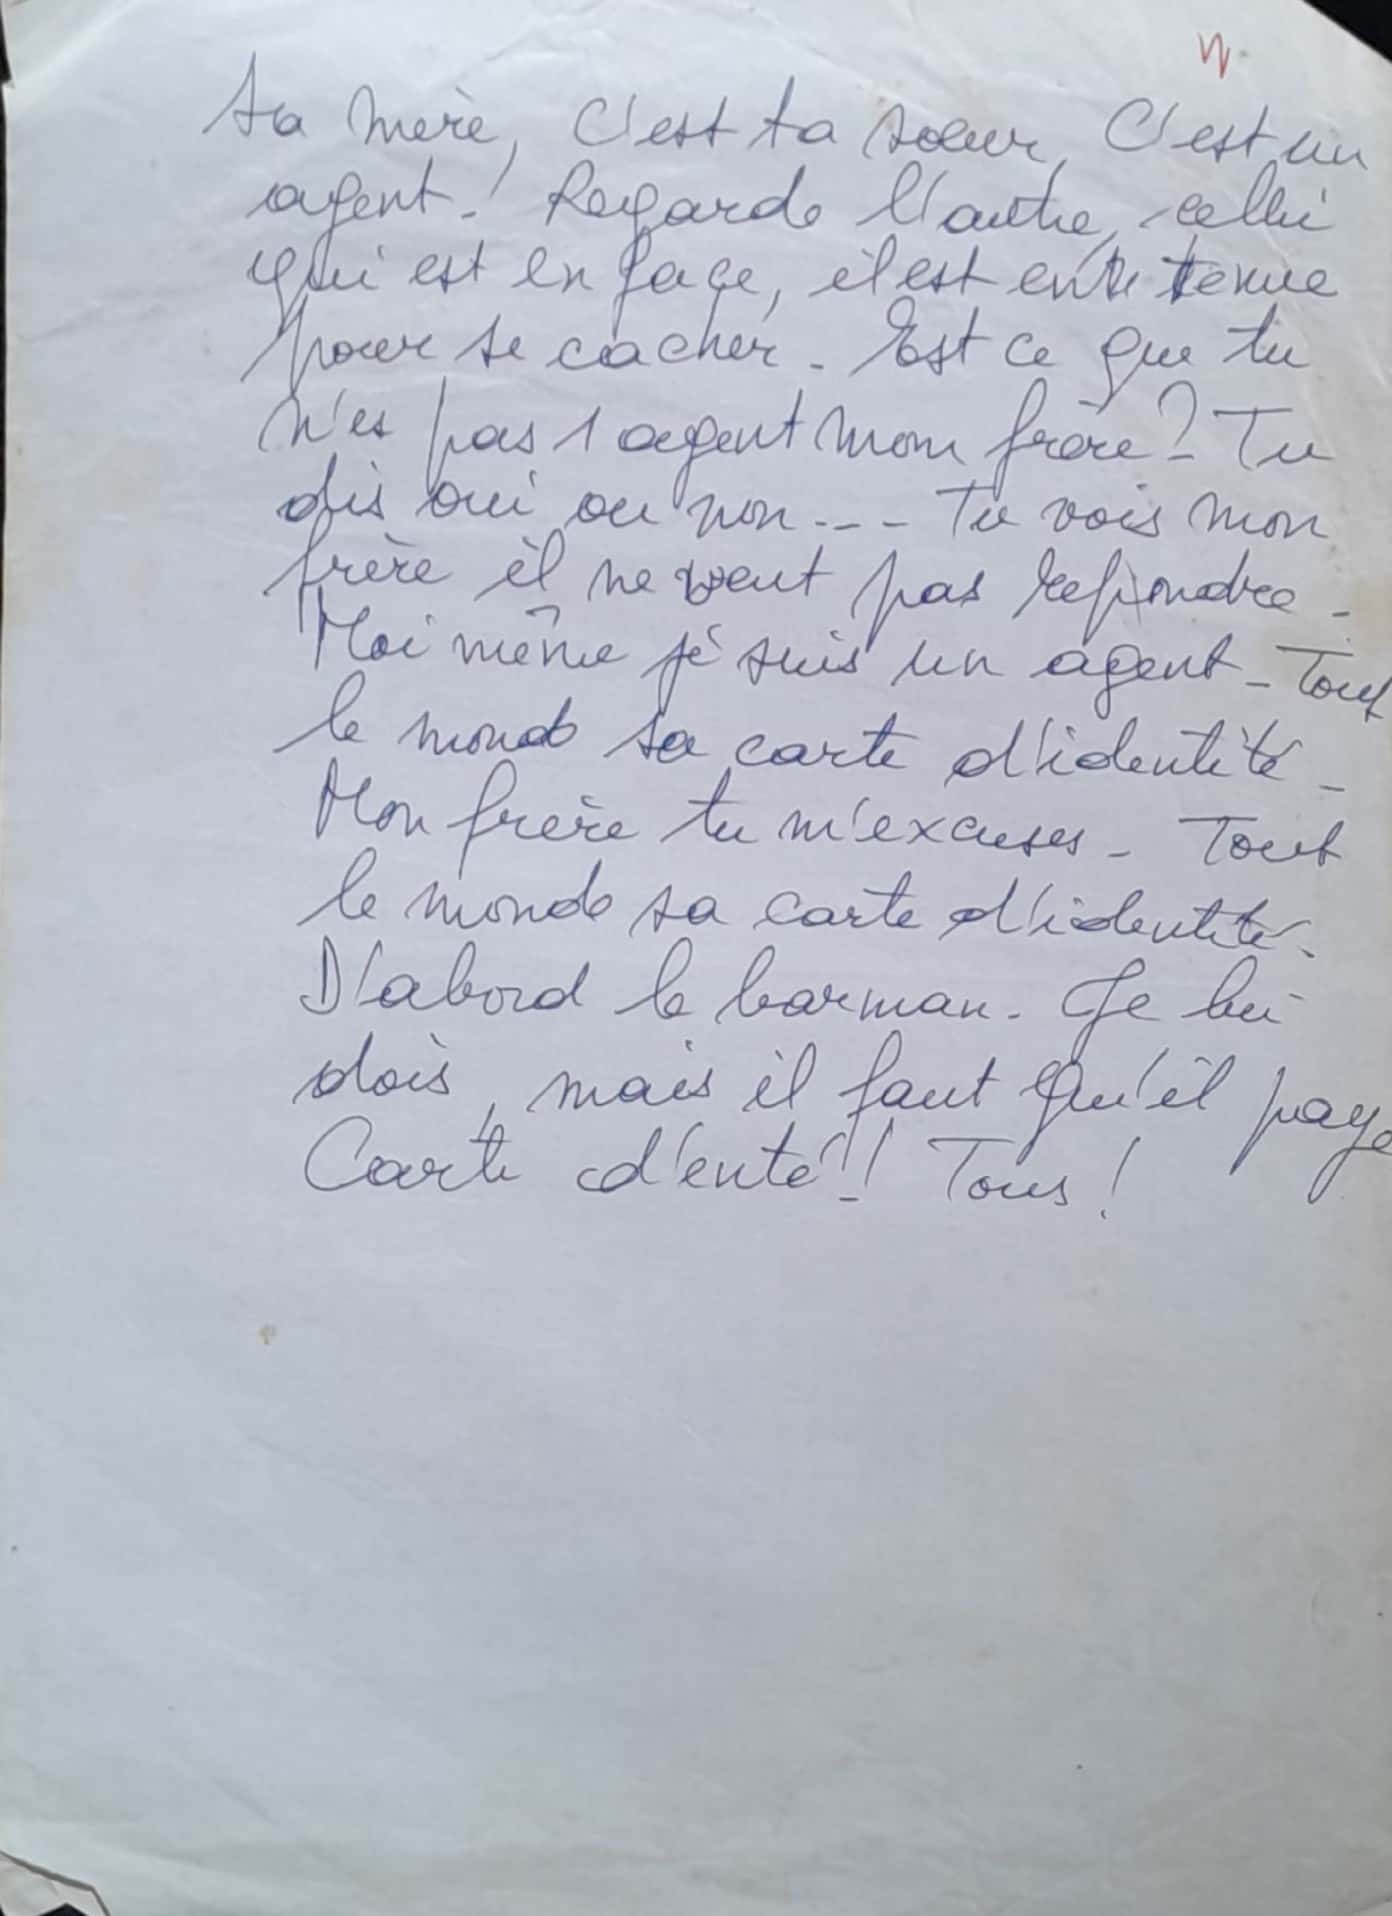 ta mère, C'est ta sœur, C'est un
agent! Regarde l'autre, celui
qui est en face, il est en tenue
pour se cacher. Est ce que tu
n'es pas 1 agent mon frère? Tu
dis oui ou non --- Tu vois mon
frère il ne veut pas repondre.
Moi même je suis un agent. Tout
le monde sa carte d'identité.
Mon frère tu m'excuses. Tout
le monde sa carte d'identité.
D'abord le barman. Je lui
dois, mais il faut qu'il paye
Carte d'enté!! Tous!